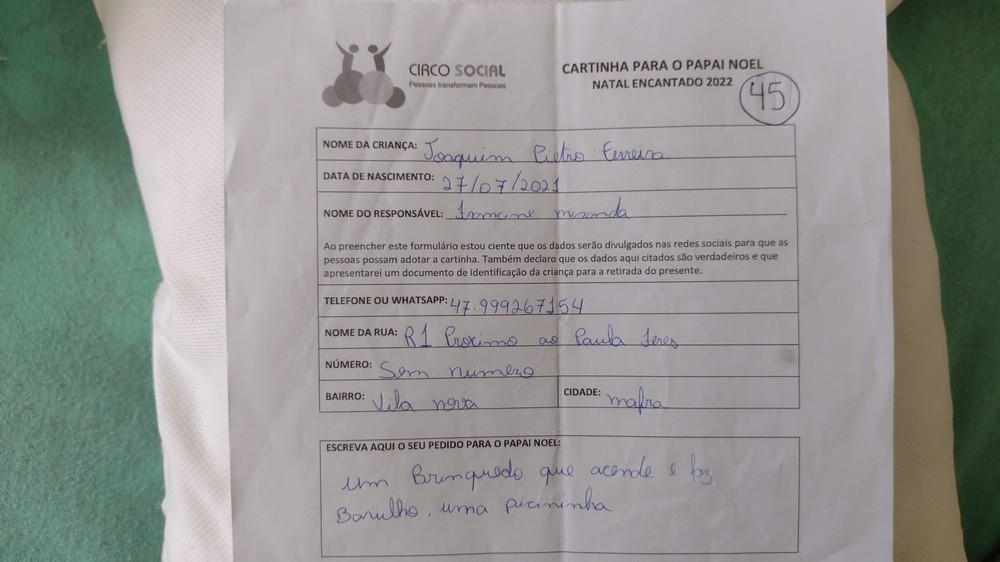 CIRCO SOCIAL
Pessoas transformam Pessoas
CARTINHA PARA O PAPAI NOEL
NATAL ENCANTADO 2022
45
NOME DA CRIANÇA: Joaquim Pietro Ferreira
DATA DE NASCIMENTO: 27/07/2021
NOME DO RESPONSÁVEL: Francine miranda
Ao preencher este formulário estou ciente que os dados serão divulgados nas redes sociais para que as
pessoas possam adotar a cartinha. Também declaro que os dados aqui citados são verdadeiros e que
apresentarei um documento de identificação da criança para a retirada do presente.
TELEFONE OU WHATSAPP: 47.999267154
NOME DA RUA: R1 Proximo ao Paula Feres
NÚMERO: Sem numero
BAIRRO: Vila nova CIDADE: mafra
ESCREVA AQUI O SEU PEDIDO PARA O PAPAI NOEL:
um Brinquedo que acende e faz
Barulho. uma picininha